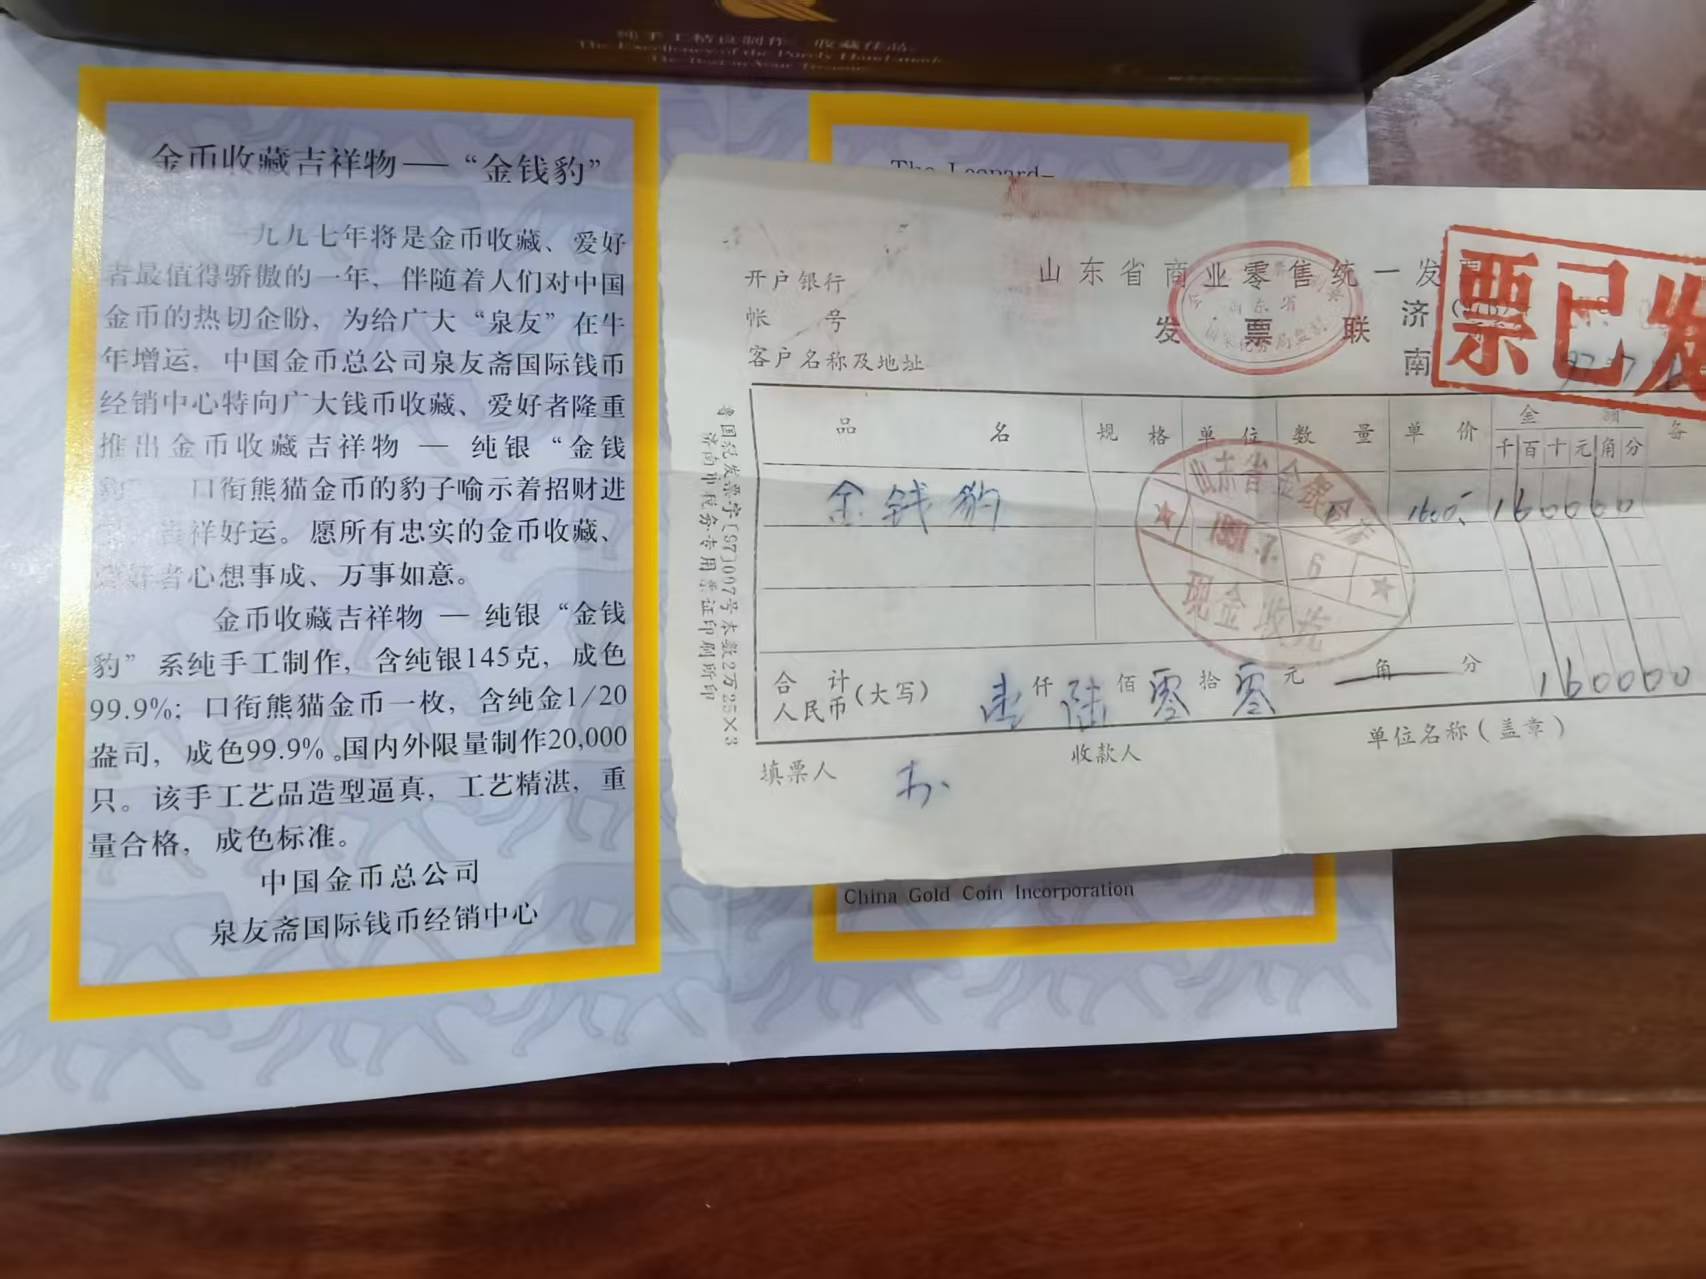 纯手工精良制作，收藏佳品。
The Excellency of the Purely Hand-made
金币收藏吉祥物——“金钱豹”
一九九七年将是金币收藏、爱好
者最值得骄傲的一年，伴随着人们对中国
金币的热切企盼，为给广大“泉友”在牛
年增运，中国金币总公司泉友斋国际钱币
经销中心特向广大钱币收藏、爱好者隆重
推出金币收藏吉祥物 — 纯银“金钱
口衔熊猫金币的豹子喻示着招财进
吉祥好运。愿所有忠实的金币收藏、
爱好者心想事成、万事如意。
金币收藏吉祥物 — 纯银“金钱
豹”系纯手工制作，含纯银145克，成色
99.9%；口衔熊猫金币一枚，含纯金1/20
盎司，成色99.9%。国内外限量制作20,000
只。该手工艺品造型逼真，工艺精湛，重
量合格，成色标准。
中国金币总公司
泉友斋国际钱币经销中心
The Leopard-
China Gold Coin Incorporation
山东省商业零售统一发
发票联
济
南
票已发
开户银行
帐 号
客户名称及地址
品 名 规 格 单 位 数 量 单 价 金 额
千 百 十 元 角 分
金钱豹 1600 160000
山东省金银
1997.7.6
现金收讫
合 计
人民币(大写) 壹仟陆佰零拾零元 角 分 160000
填票人
收款人
单位名称(盖章)
济南市税务专用票证印刷所印